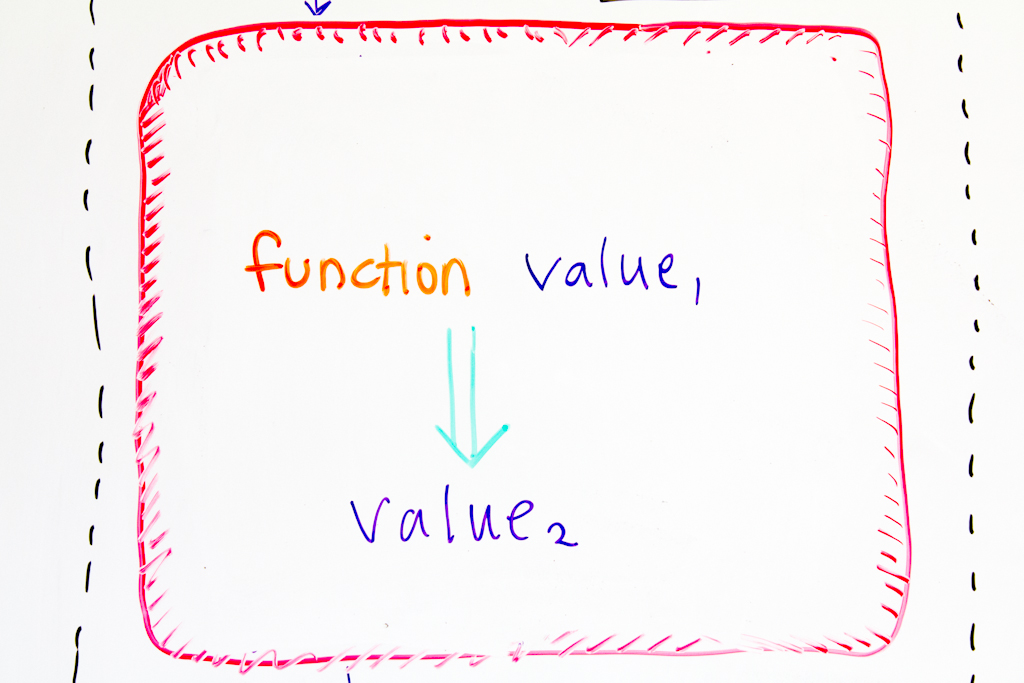 function value₁
value₂